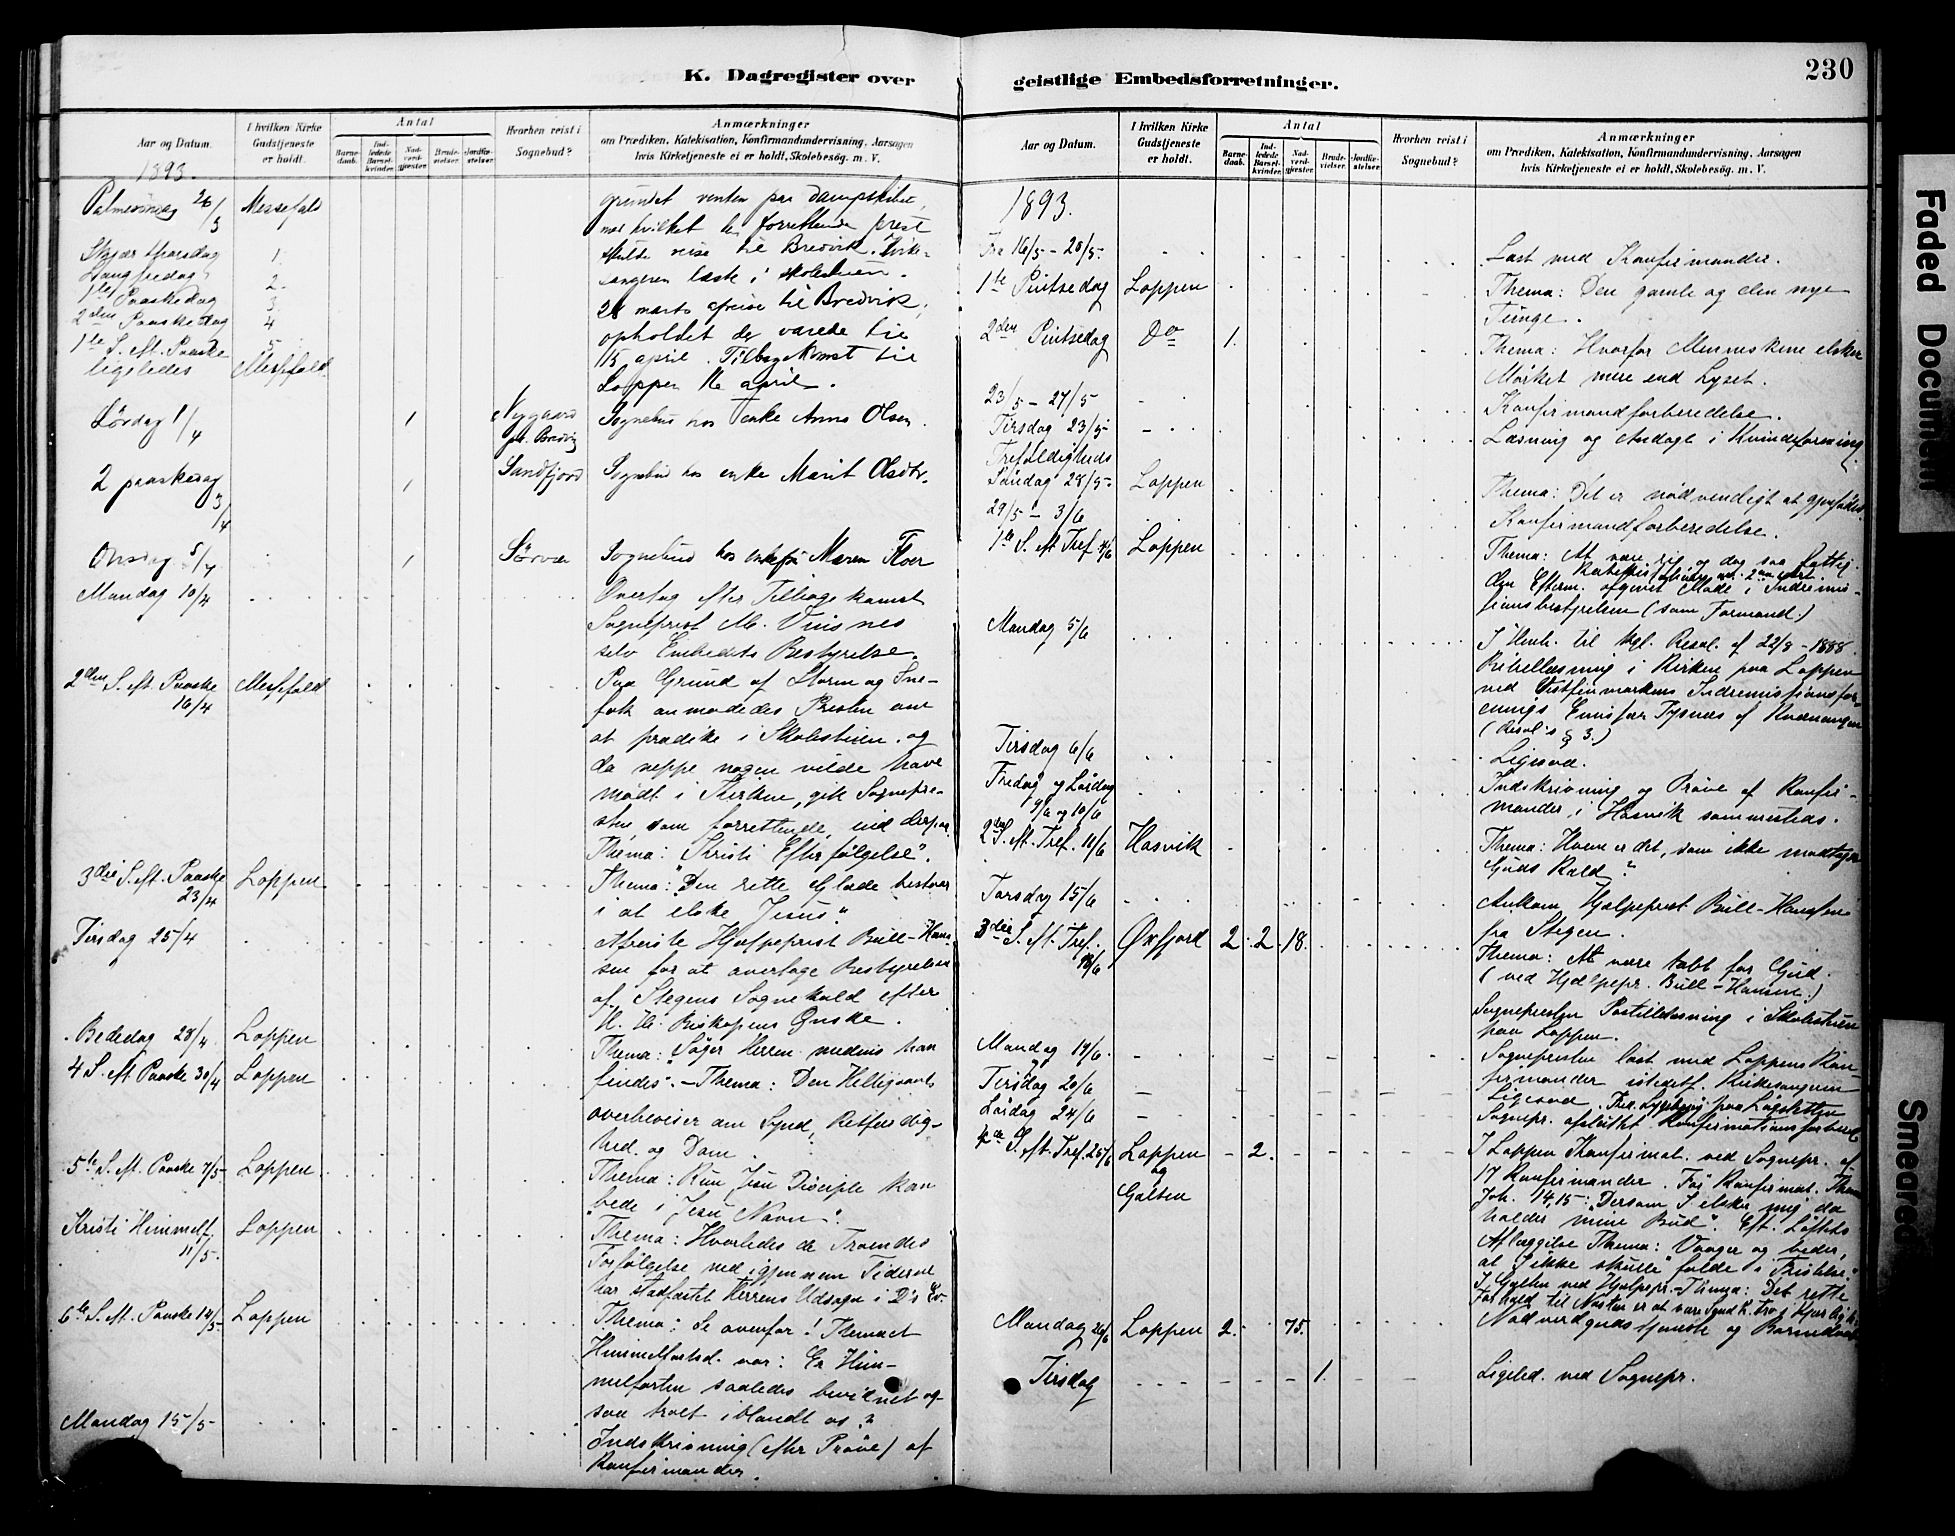 K. Dagregister over
Aar og Datum.
I hvilken Kirke Gudstjeneste er holdt.
Antal
Barne-daab.
Ind-ledede Barsel-kvinder.
Nad-verd-gjester.
Brude-vielser.
Jordfæ-stelser.
Hvorhen reist i Sognebud?
Anmærkninger
om Prædiken, Katekisation, Konfirmandundervisning, Aarsagen
hvis Kirketjeneste ei er holdt, Skolebesög. m. V.
1893.
Palmesöndag 26/3 Messefald
grundet venten paa dampskibet,
med hvilket den forrettende prest
skulde reise til Bredvik. Kirke-
sangeren læste i skolestuen.
Skjær thorsdag 1.
Langfredag 2.
1ste Paaskedag 3
2den Paaskedag 4
1te S. eft. Paaske 5
ligeledes Messefald.
28 marts afreise til Bredvik,
opholdet der varede til
15 april. Tilbagekomst til
Loppen 16 april.
Lördag 1/4 1 Nygaard pr. Bredvig Sognebud hos enke Anna Olsen.
2 paaskedag 3/4 1 Sandfjord Sognebud hos enke Marit Olsdtr.
Onsdag 5/4 1 Sörvær Sognebud hos enkefru Maren Floer
Mandag 10/4
Overtog efter Tilbagekomst
Sogneprest M. Tuisnes
selv Embedets Bestyrelse.
2den S. eft. Paaske 16/4 Messefald
Paa Grund af Storm og Sne-
fok anmodedes Presten om
at prædike i Skolestuen. og
da neppe nogen vilde have
mödt i Kirken, gik Sognepre-
sten, som forrettende, ind derpaa.
Thema: "Kristi Efterfölgelse".
3die S. eft. Paaske 23/4 Loppen
Thema: "Den rette Glæde bestaar
i at elske Jesus".
Tirsdag 25/4
Afreiste Hjælpeprest Bull-Han-
sen for at overtage Bestyrelsen
af Stegens Sognekald efter
H. H. Biskopens Ønske.
Bededag 28/4. Loppen
Thema: "Söger Herren medens han
findes".
4 S. eft. Paaske 30/4 Loppen
- Thema: Den Helligaand
overbeviser om Synd, Retfærdig-
hed og Dom.
5te S. eft. Paaske 7/5 Loppen
Thema: Kun Jesu Disciple kan
"bede i Jesu Navn".
Kristi Himmelf. 11/5. Loppen
Thema: Hvorledes de Troendes
Forfölgelse ned igjennem Tiderne
har stadfæstet Herrens Udsagn i D's Ev.
6te S. eft. Paaske 14/5 Loppen
Thema: Se ovenfor! Themaet
Himmelfartsd. var: Er Him-
melfarten saaledes bevidnet og-
saa troet iblandt os?
Mandag 15/5
Indskrivning (efter Pröve) af
Konfirmander.
geistlige Embedsforretninger.
230
Aar og Datum.
I hvilken Kirke Gudstjeneste er holdt.
Antal
Barne-daab.
Ind-ledede Barsel-kvinder.
Nad-verd-gjester.
Brude-vielser.
Jordfæ-stelser.
Hvorhen reist i Sognebud?
Anmærkninger
om Prædiken, Katekisation, Konfirmandundervisning, Aarsagen
hvis Kirketjeneste ei er holdt, Skolebesög. m. V.
1893.
Fra 16/5 - 20/5 Læst med Konfirmander.
1ste Pintsedag Loppen
Thema: Den gamle og den nye
Tunge.
2den Pintsedag Do 1.
Thema: Hvorfor Menneskene elsker
Mörket mere end Lyset.
23/5 - 27/5 Konfirmandforberedelse.
Tirsdag 23/5 Læsning og Andagt i Kvindeforening.
Trefoldigheds
Söndag 28/5 Loppen Thema: Det er nödvendigt at gjenfödes.
29/5 - 3/6 Konfirmandforberedelse.
1te S. eft. Tref. 4/6 Loppen
Thema: At være rig og dog saa fattig.
Efterm. afgivet Möde i Indremis-
sionsbestyrelsen (som Formand)
Mandag 5/6
I Henh. til kgl. Resol. af 22/9 - 1888
Bibellæsning i Kirken paa Loppen
ved Vestfinmarkens Indremissionsfor-
enings Emissær Tysnæs af Kvænangen
(Resol's § 3.)
Tirsdag 6/6 Ligesaa.
Fredag og Lördag 9/6 og 10/6
Indskrivning og Pröve af Konfir-
mander i Hasvik sammesteds.
2den S. eft. Tref. 11/6 Hasvik
Thema: Hvem er det, som ikke modtager
Guds Kald?
Torsdag 15/6
Ankom Hjælpeprest Bull-Hansen
fra Stegen.
3die S. eft. Tref. 18/6 Øxfjord 2. 2. 18.
Thema: At være tabt for Gud.
(ved Hjælpepr. Bull-Hansen.)
Sognepresten Postillelæsning i Skolestuen
paa Loppen.
Mandag 19/6.
Sognepresten læst med Loppens Kon-
firmander istedetf. Kirkesangeren
Tirsdag 20/6 Ligesaa.
Lördag 24/6 Sognepr. afsluttet Konfirmationsforbered.
4de S. eft. Tref. 25/6 Loppen og Galten 2.
I Loppen Konfirmat. ved Sognepr. af
17 Konfirmander. För Konfirmat. Thema
Joh. 14,15: "Dersom I elske mig da
holder mine Bud". Eft. Löftets
Aflæggelse Thema: Vaager og beder,
at I ikke skulle falde i Fristelse."
I Galten ved Hjælpepr. Thema: Det rette
Forhold til Næsten er at
Mandag 26/6 Loppen 2. 75. Nadverdgudstjeneste og Barnedaab
Tirsdag 1. Ligeled. ved Sognepr.
Faded Document
Smeared